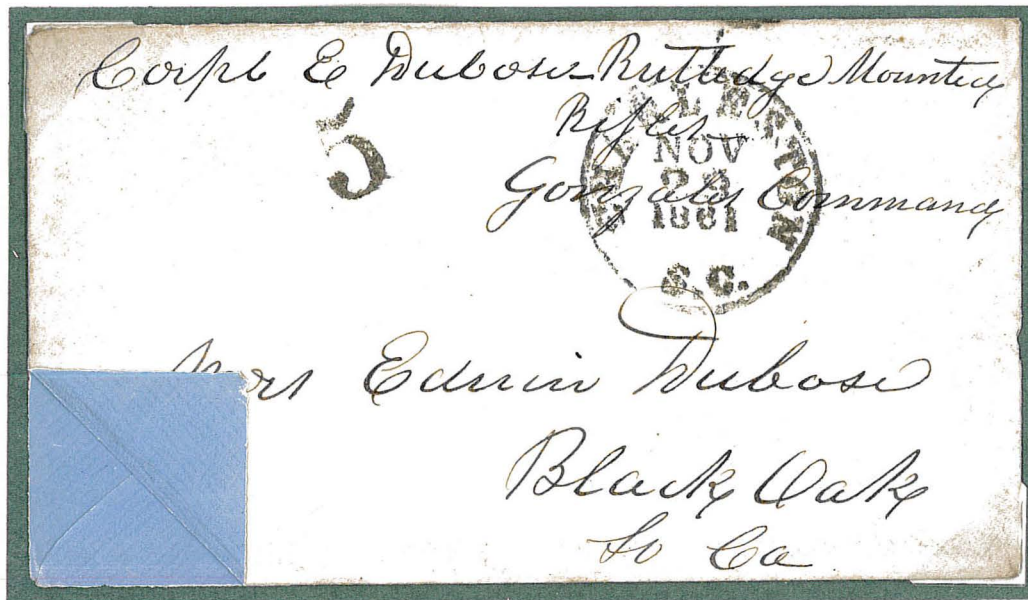 Corpl E Dubose - Rutledge Mounted
Rifles
Gonzales Command
5
CHARLESTON
NOV
1861
S.C.
Mrs Edwin Dubose
Black Oak
So Ca